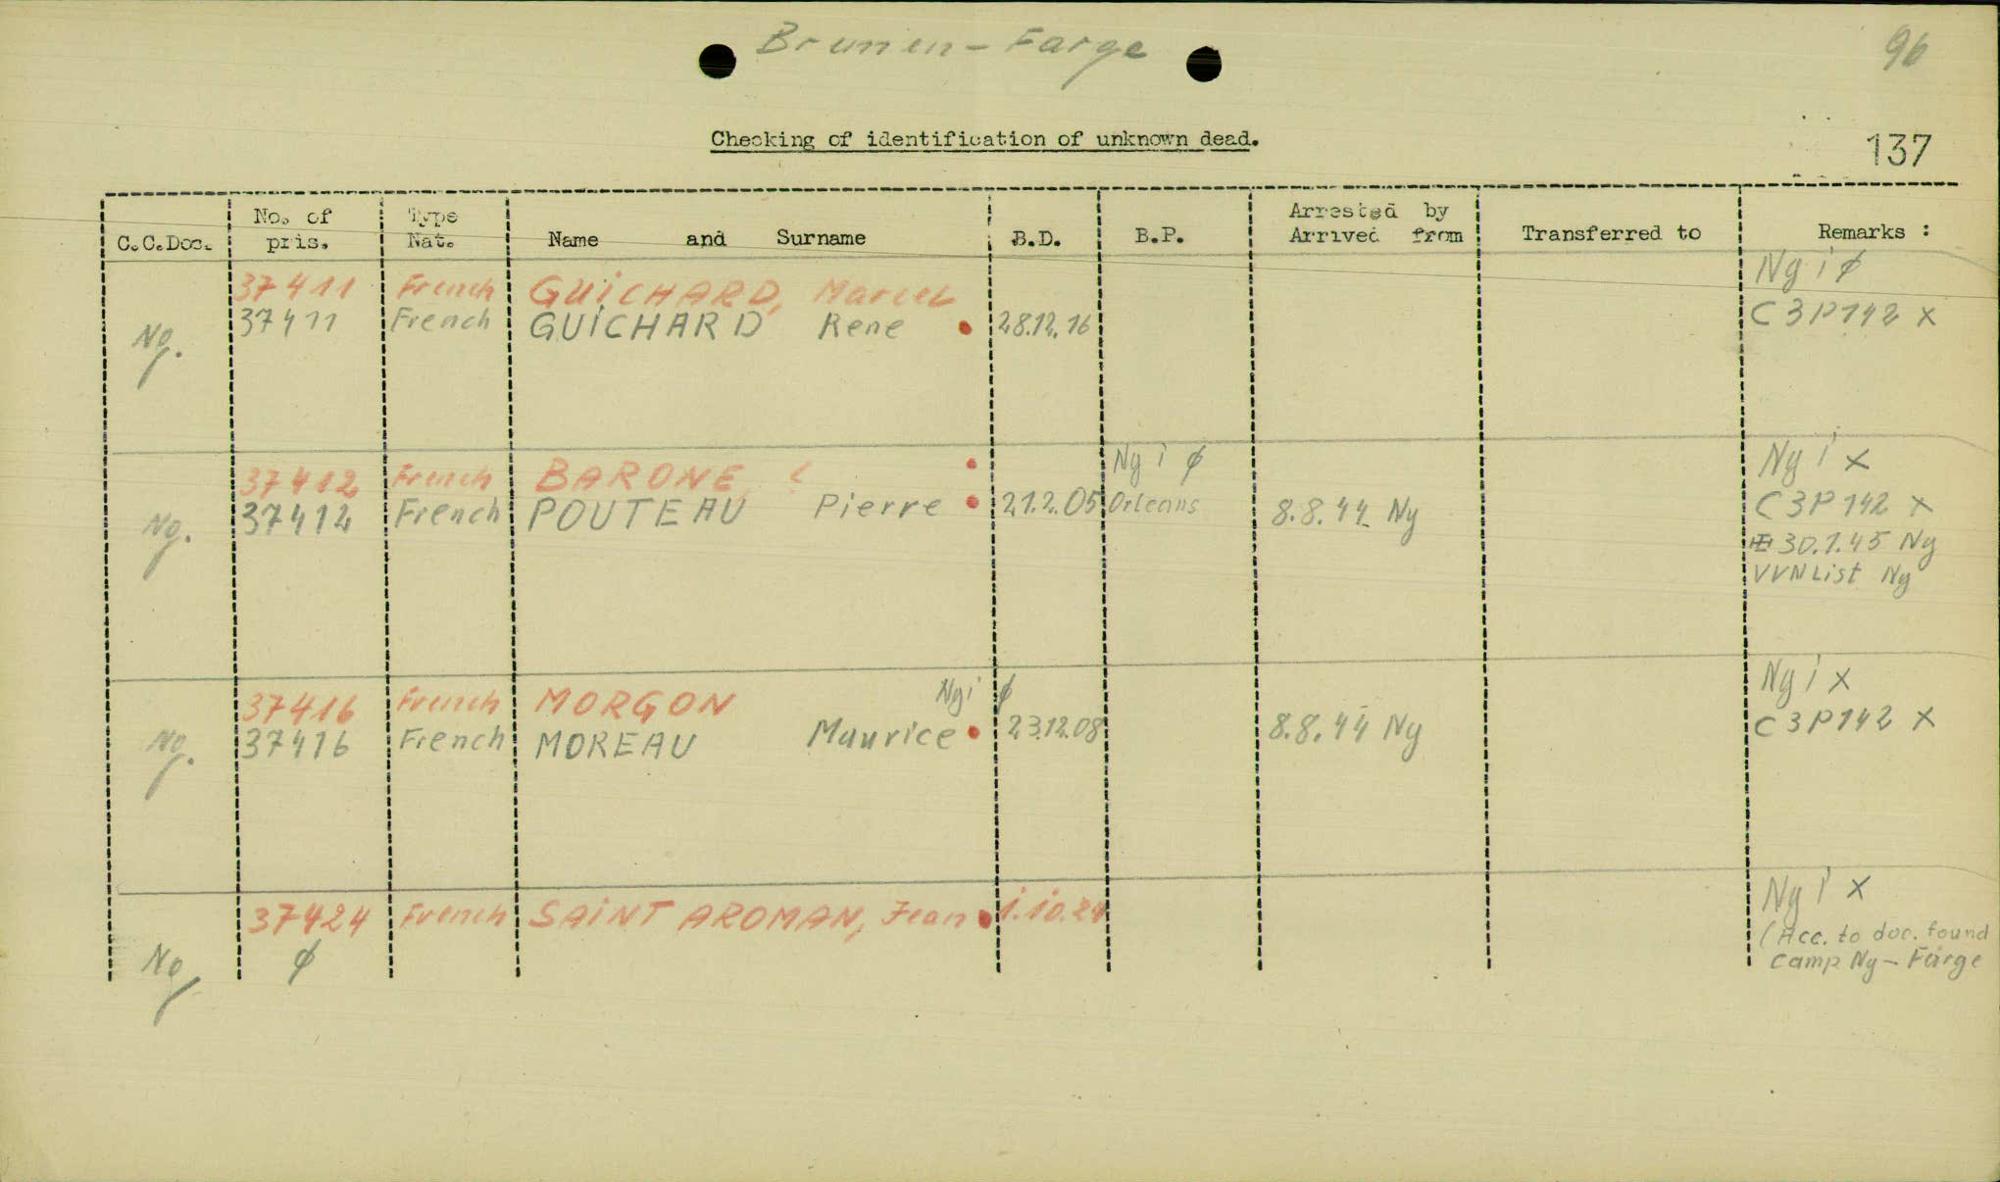 Brumen-Farge
96
Checking of identification of unknown dead.
137
C.C.Doc. No. of pris. Type Nat. Name and Surname B.D. B.P. Arrested by Arrived from Transferred to Remarks :
Ng i ø
37411 French GUICHARD, Marcel
Ng. 37411 French GUICHARD Rene 28.12.16 C3P142 x
37412 French BARONE, Ng i ø Ng i x
Ng. 37412 French POUTEAU Pierre 21.2.05 Orleans 8.8.44 Ng C3P142 x
30.1.45 Ng
VVN List Ng
37416 French MORGON Ng i ø Ng i x
Ng. 37416 French MOREAU Maurice 23.12.08 8.8.44 Ng C3P142 x
Ng i x
37424 French SAINT AROMAN, Jean 1.10.24
Ng ø (Acc. to doc. found
camp Ng - Farge